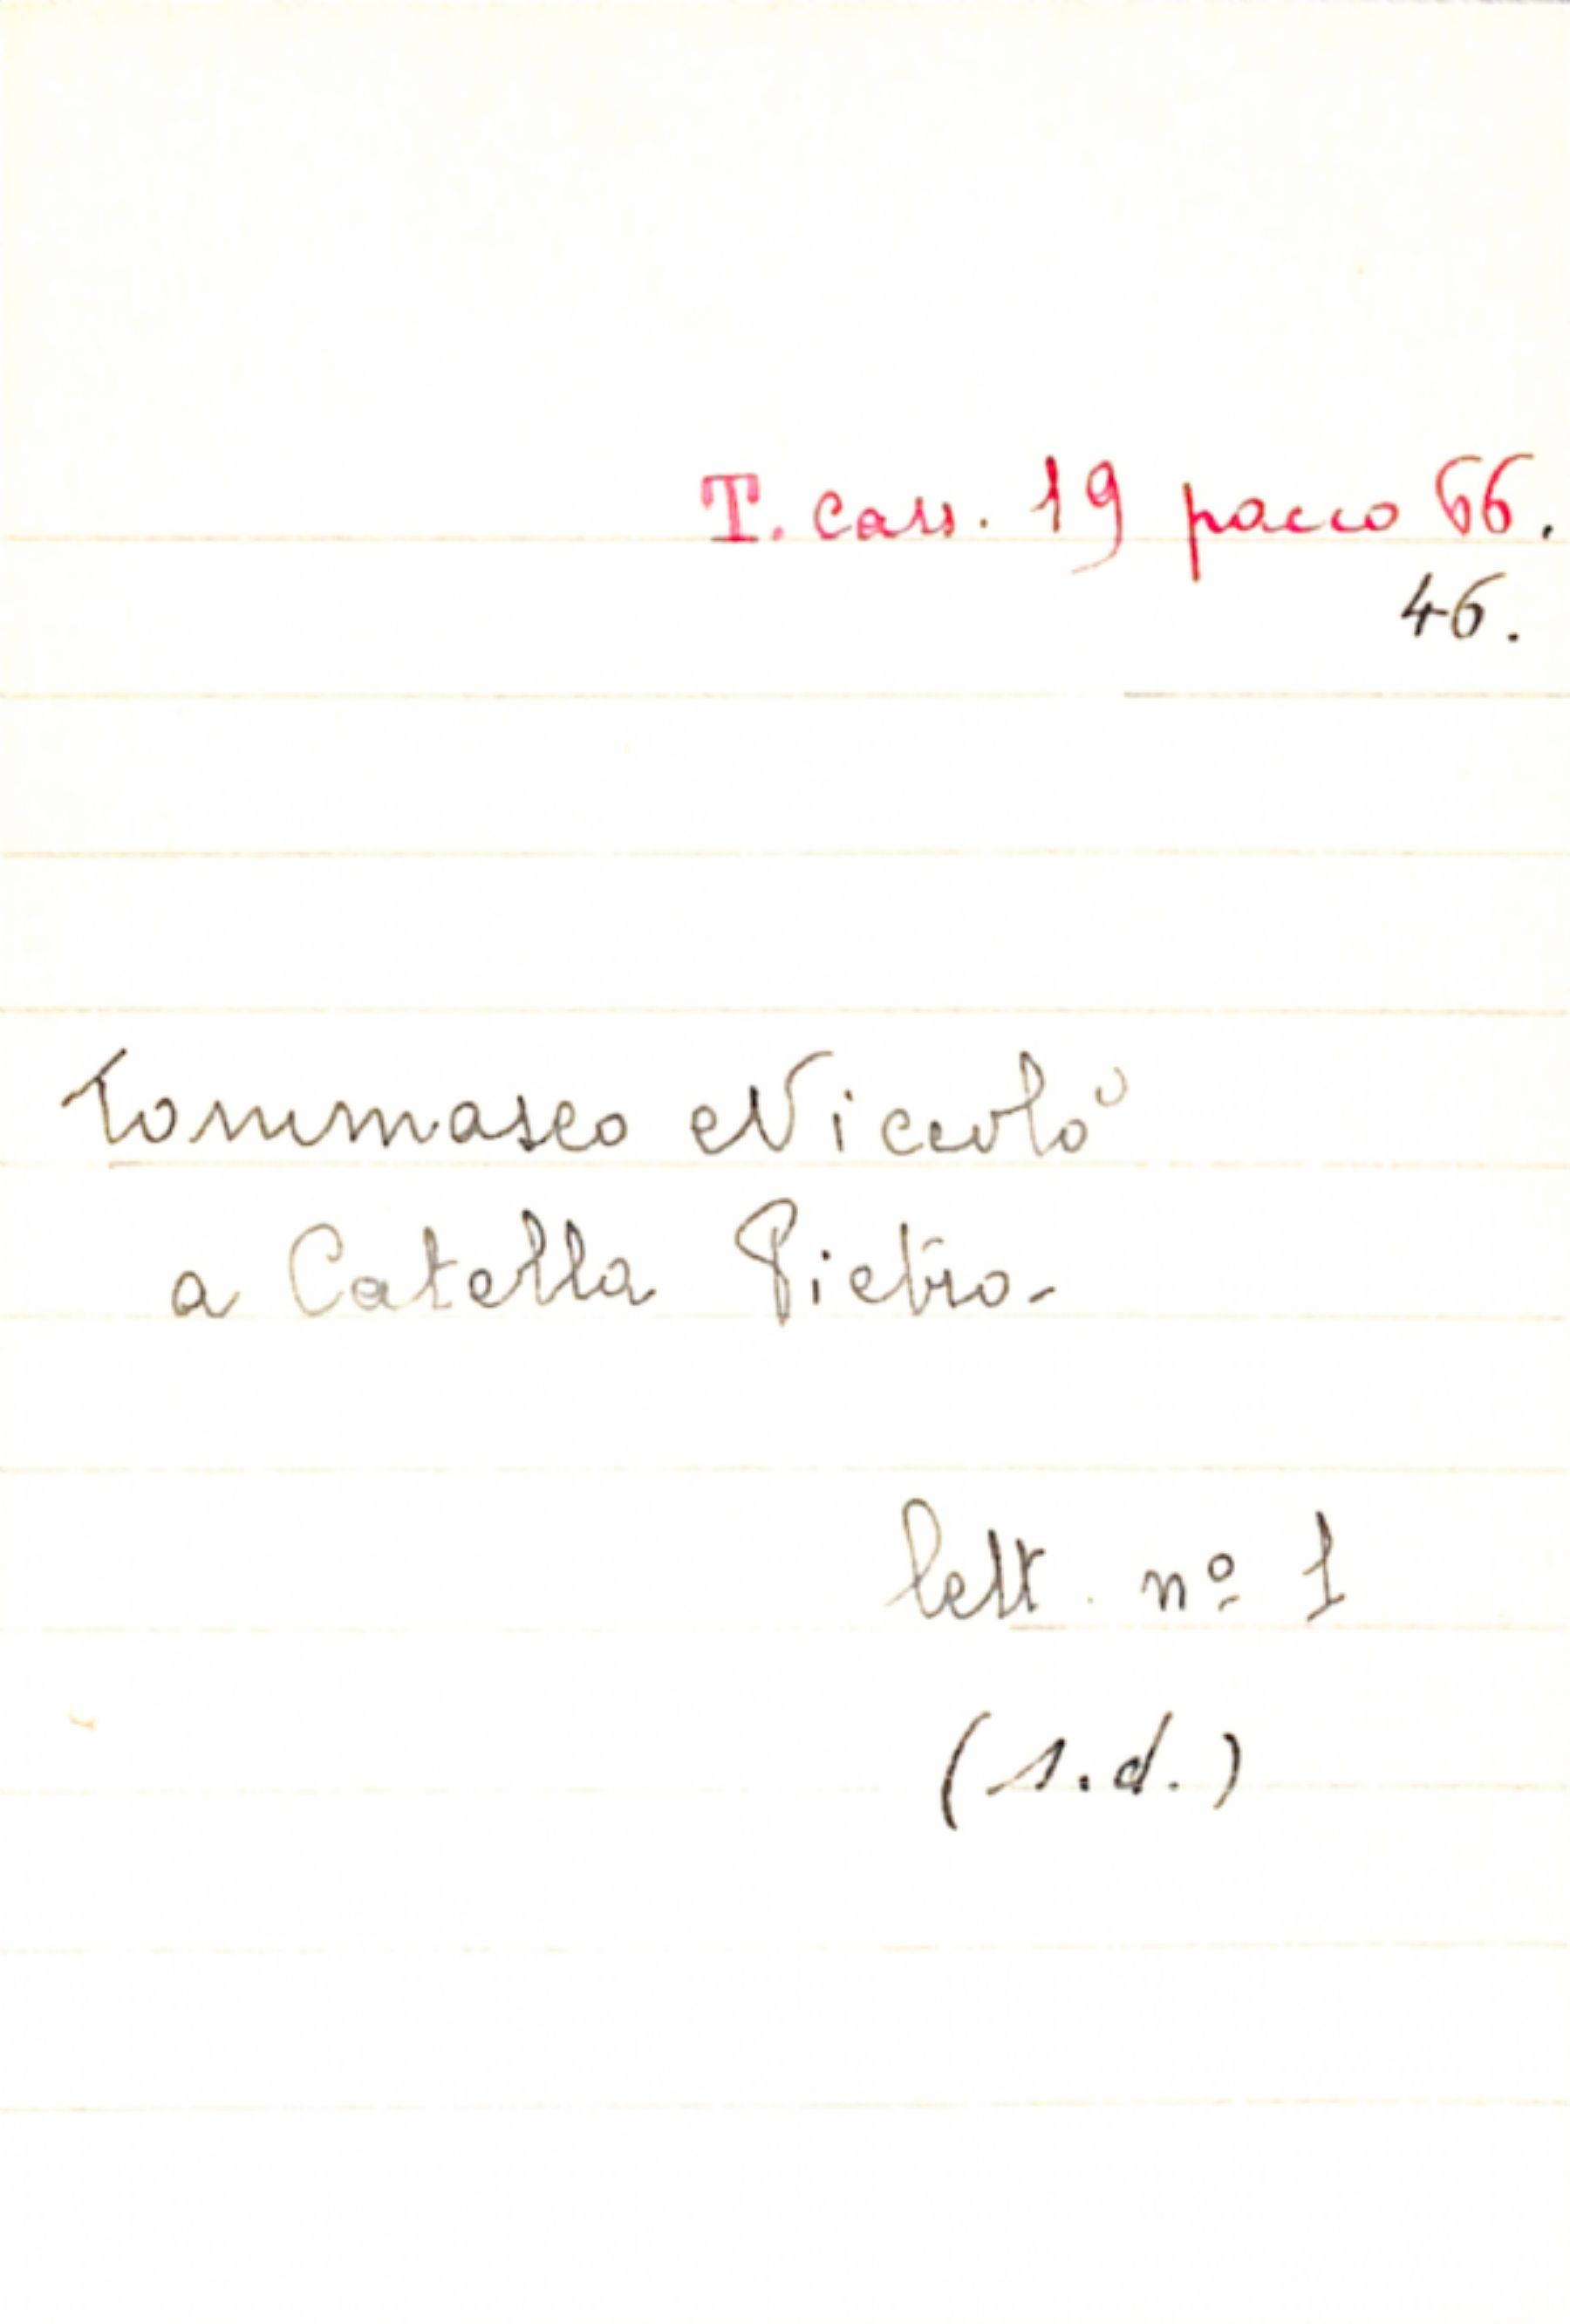 T. cass. 19 pacco 66.
46.
Tommaseo Niccolò
a Catella Pietro-
lett. nº 1
(s.d.)